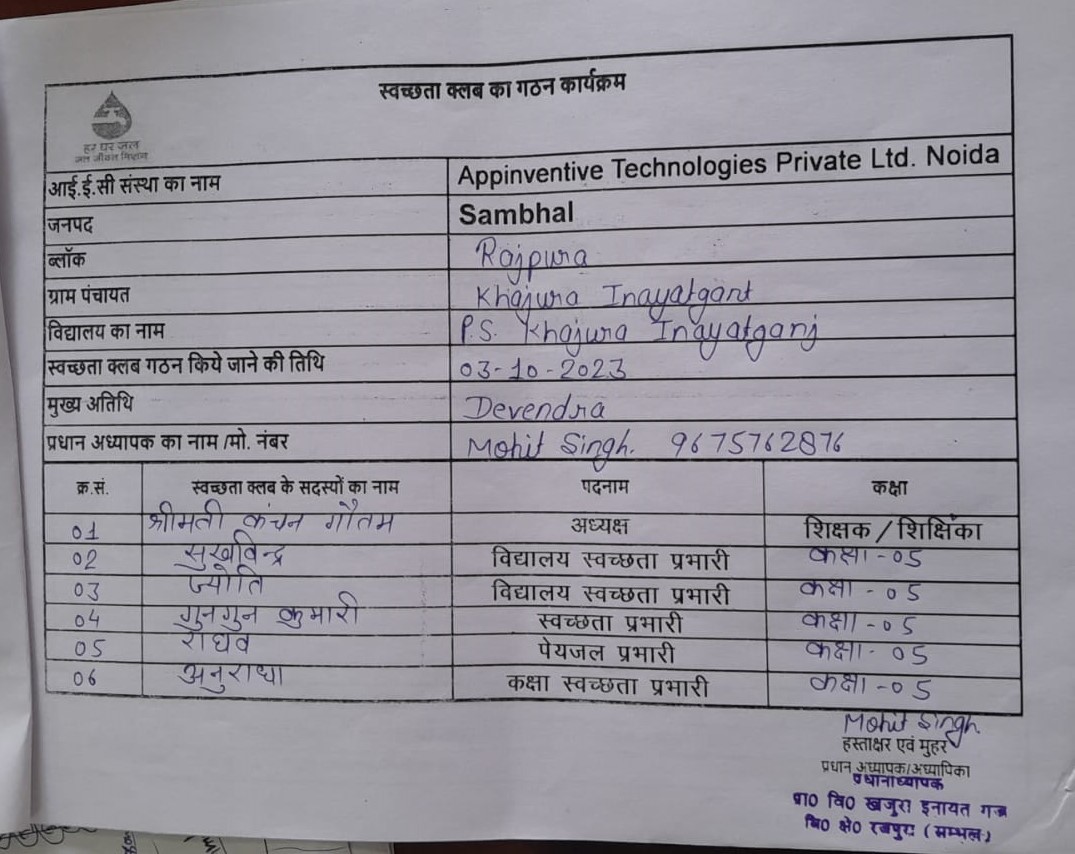 स्वच्छता क्लब का गठन कार्यक्रम
हर घर जल
जल जीवन मिशन
आई.ई.सी संस्था का नाम Appinventive Technologies Private Ltd. Noida
जनपद Sambhal
ब्लॉक Rajpura
ग्राम पंचायत Khajura Inayatgant
विद्यालय का नाम P.S. Khajura Inayatganj
स्वच्छता क्लब गठन किये जाने की तिथि 03-10-2023
मुख्य अतिथि Devendra
प्रधान अध्यापक का नाम /मो. नंबर Mohit Singh. 9675762876
क्र.सं. स्वच्छता क्लब के सदस्यों का नाम पदनाम कक्षा
01 श्रीमती कंचन गौतम अध्यक्ष शिक्षक / शिक्षिका
02 सुखविन्द्र विद्यालय स्वच्छता प्रभारी कक्षा - 05
03 ज्योति विद्यालय स्वच्छता प्रभारी कक्षा - 05
04 गुनगुन कुमारी स्वच्छता प्रभारी कक्षा - 05
05 राघव पेयजल प्रभारी कक्षा - 05
06 अनुराधा कक्षा स्वच्छता प्रभारी कक्षा - 05
Mohit Singh.
हस्ताक्षर एवं मुहर
प्रधान अध्यापक/अध्यापिका
प्रधानाध्यापक
प्रा0 वि0 खजुरा इनायत गंज
वि0 क्षे0 रजपुरा (सम्भल)